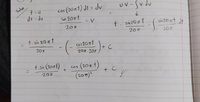 t = u cos(20πt) dt = dv uv - ∫v du
dt = du sin20πt / 20π = v t · sin20πt / 20π - ∫ sin20πt / 20π dt
= t · sin20πt / 20π - ( - cos20πt / 20π · 20π ) + c
= t sin(20πt) / 20π + cos(20πt) / (20π)² + C